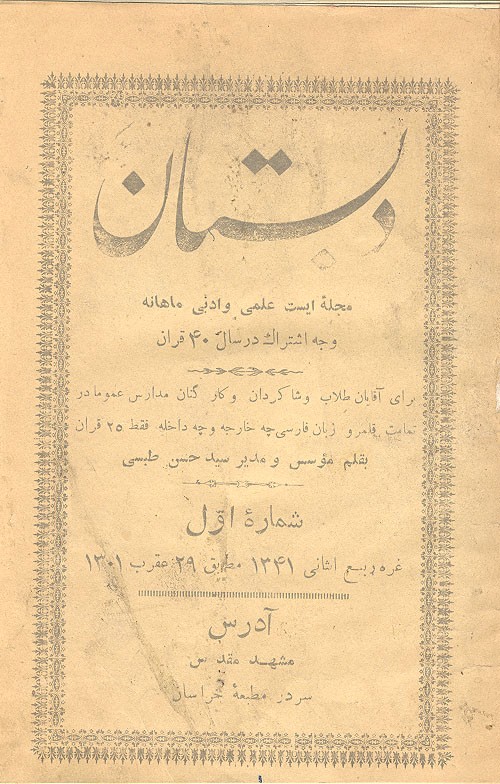 دبستان
مجلهٔ ایست علمی و ادبی ماهانه
وجه اشتراك در سال ۴۰ قران
برای آقایان طلاب و شاکردان و کار کنان مدارس عموما در
تمامت قلمرو زبان فارسی چه خارجه و چه داخله فقط ۲۵ قران
بقلم مؤسس و مدیر سید حسن طبسی
شمارهٔ اوّل
غره ربیع الثانی ۱۳۴۱ مطابق ۲۹ عقرب ۱۳۰۱
آدرس
مشهد مقدس
سردر مطبعهٔ خراسان